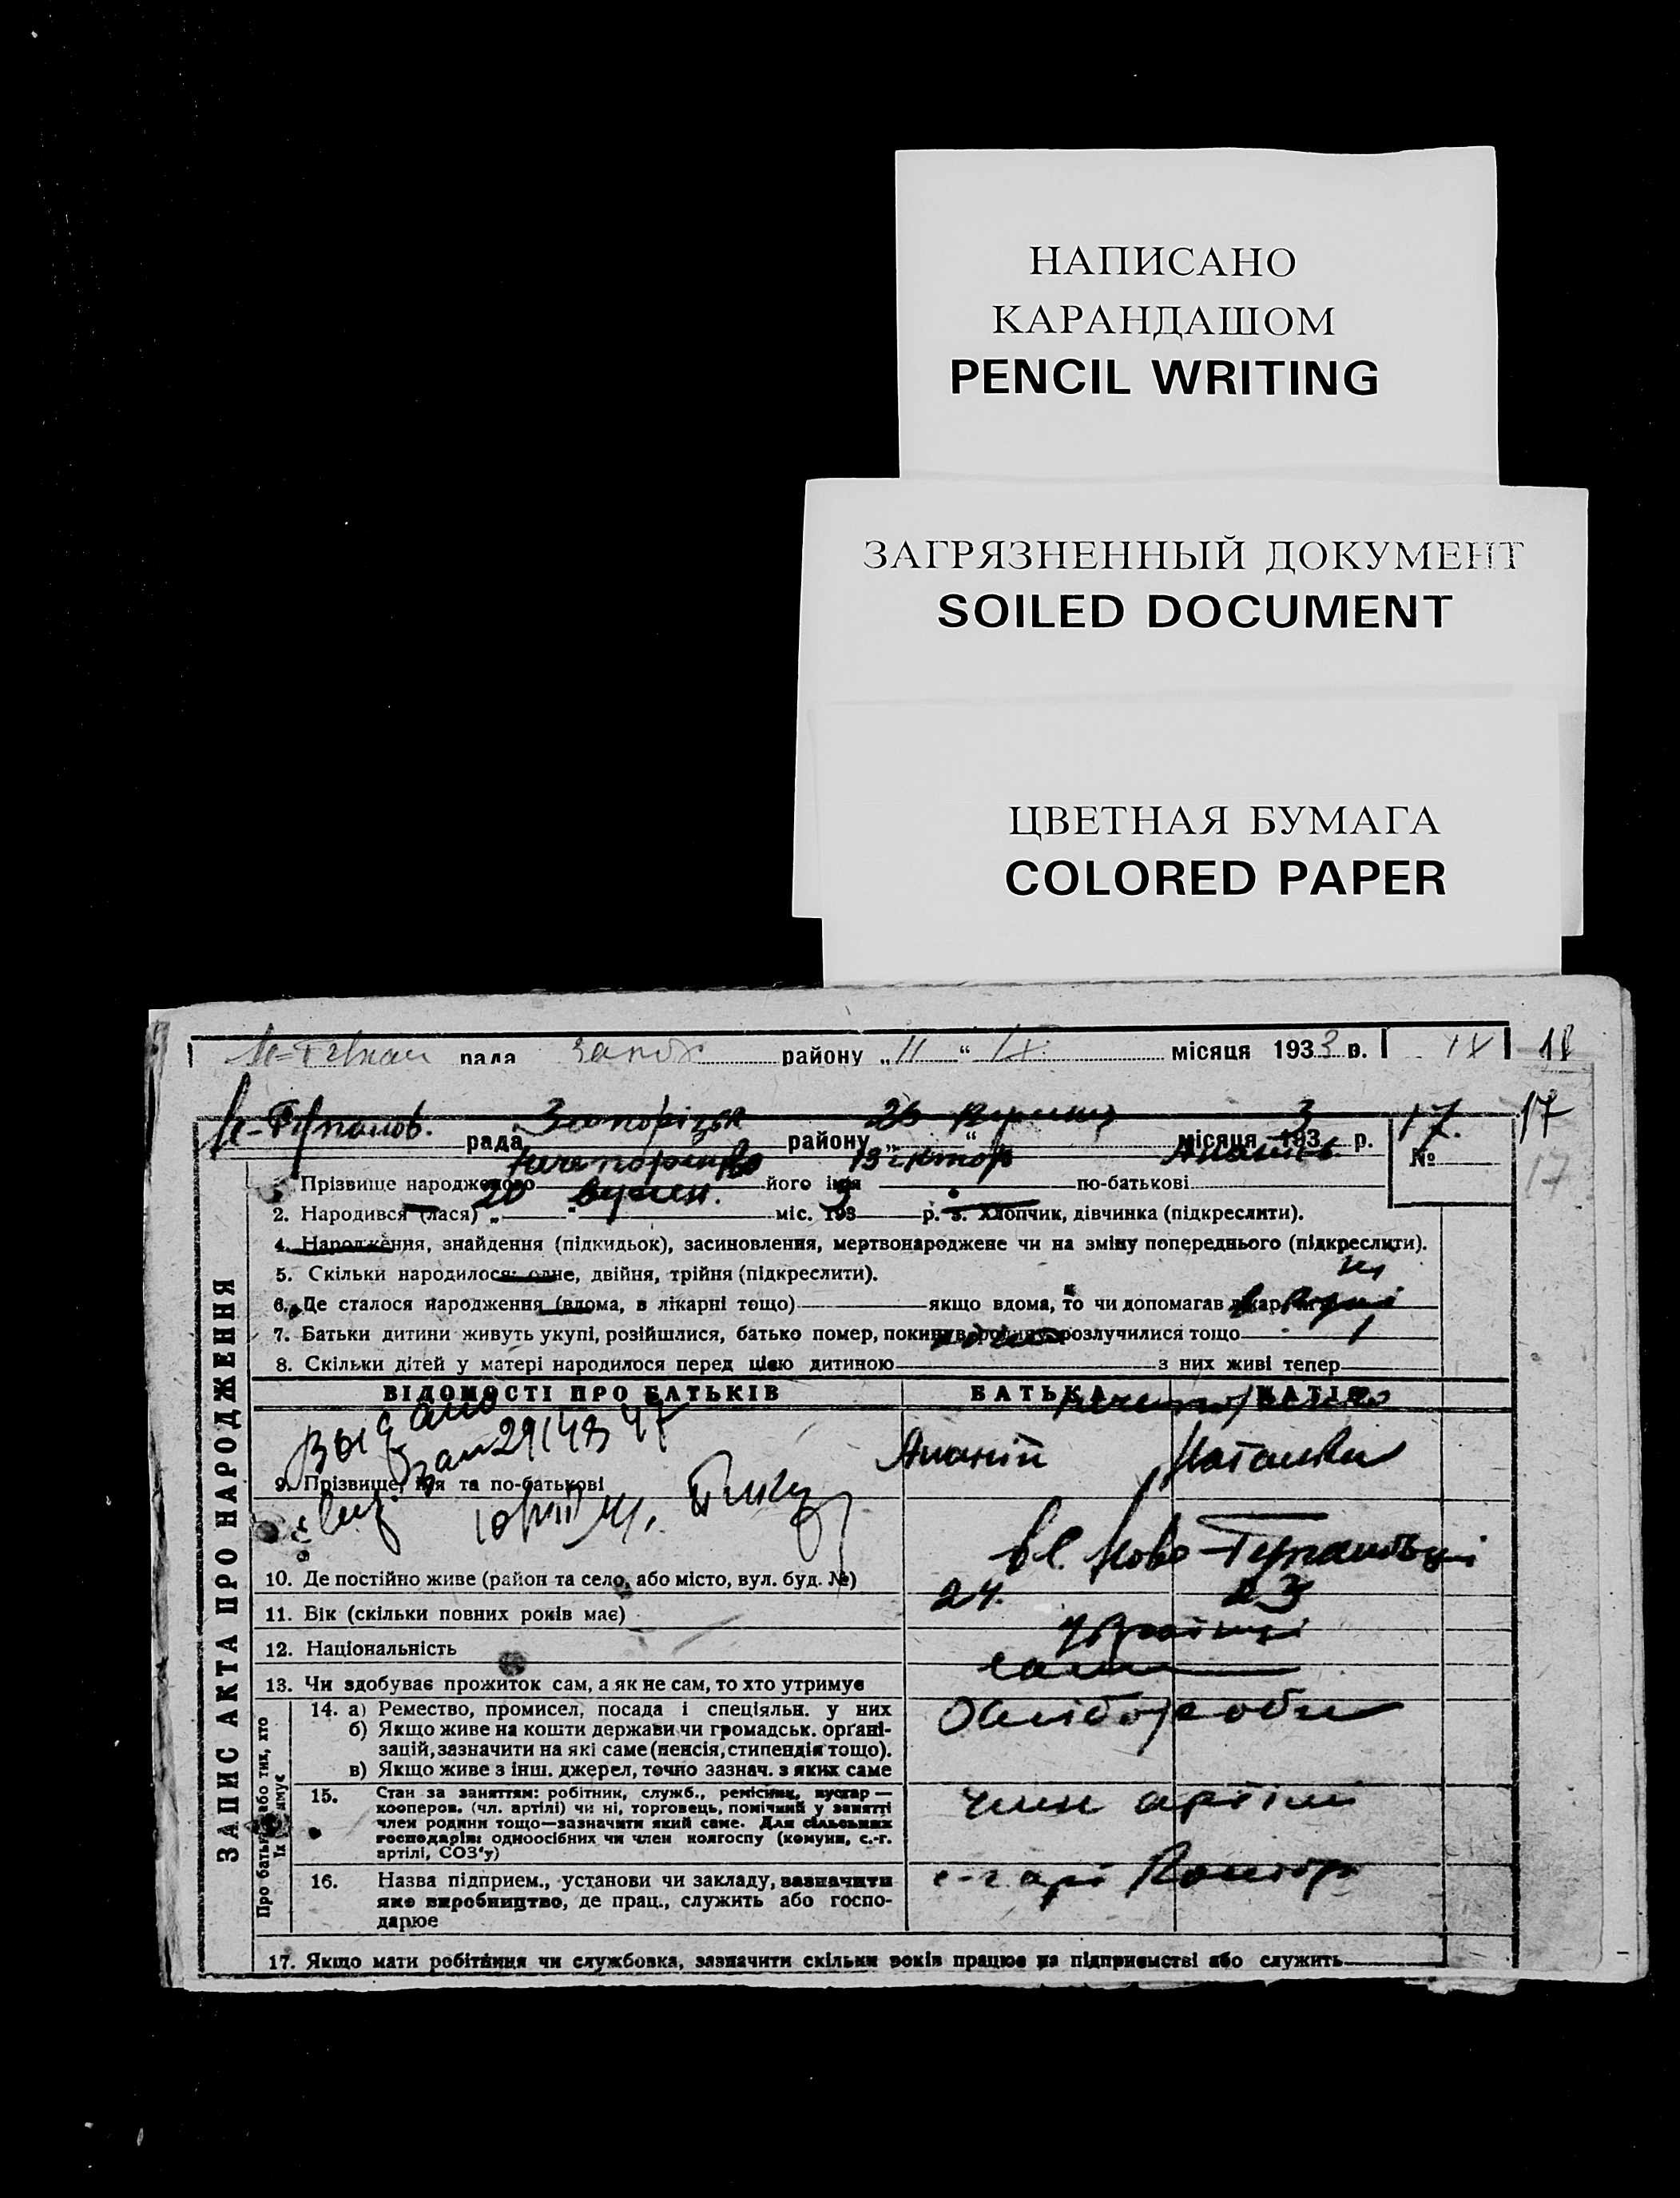 НАПИСАНО
КАРАНДАШОМ
PENCIL WRITING
ЗАГРЯЗНЕННЫЙ ДОКУМЕНТ
SOILED DOCUMENT
ЦВЕТНАЯ БУМАГА
COLORED PAPER
рада запор району „11“ IX місяця 1933 р. IX 18
рада Запорізьк району „23“ місяця 193 3 р. № 17. 17
17
ЗАПИС АКТА ПРО НАРОДЖЕННЯ
1. Прізвище народженого Нечипоренко його імя Віктор по-батькові Ананієв.
2. Народився (лася) „20“ вересн. міс. 193 3 р. 3. Хлопчик, дівчинка (підкреслити).
4. Народження, знайдення (підкидьок), засиновлення, мертвонароджене чи на зміну попереднього (підкреслити).
5. Скільки народилося: одне, двійня, трійня (підкреслити).
6. Де сталося народження (вдома, в лікарні тощо) якщо вдома, то чи допомагав лікар
7. Батьки дитини живуть укупі, розійшлися, батько помер, покинув родину, розлучилися тощо
8. Скільки дітей у матері народилося перед цією дитиною з них живі тепер 1
ВІДОМОСТІ ПРО БАТЬКІВ БАТЬКА МАТІР
Нечипоренко
Выдано
9. Прізвище, імя та по-батькові Ананій Наталка
10. Де постійно живе (район та село, або місто, вул. буд. №)
11. Вік (скільки повних років має) 24. 23
12. Національність Українці
13. Чи здобуває прожиток сам, а як не сам, то хто утримує сами
Про батьків або тих, хто їх утримує
14. а) Ремество, промисел, посада і спеціяльн. у них Хлібороби
б) Якщо живе на кошти держави чи громадськ. орґані-
зацій, зазначити на які саме (пенсія, стипендія тощо).
в) Якщо живе з інш. джерел, точно зазнач. з яких саме
15. Стан за заняттям: робітник, служб., ремісник, кустар —
кооперов. (чл. артілі) чи ні, торговець, помічний у занятті
член родини тощо—зазначити який саме. Для сільських
господарів: одноосібних чи член колгоспу (комуни, с.-г.
артілі, СОЗ'у)
член артіли
16. Назва підприєм., установи чи закладу, зазначити
яке виробництво, де прац., служить або госпо-
дарює
17. Якщо мати робітниця чи службовка, зазначити скільки років працює на підприємстві або служить